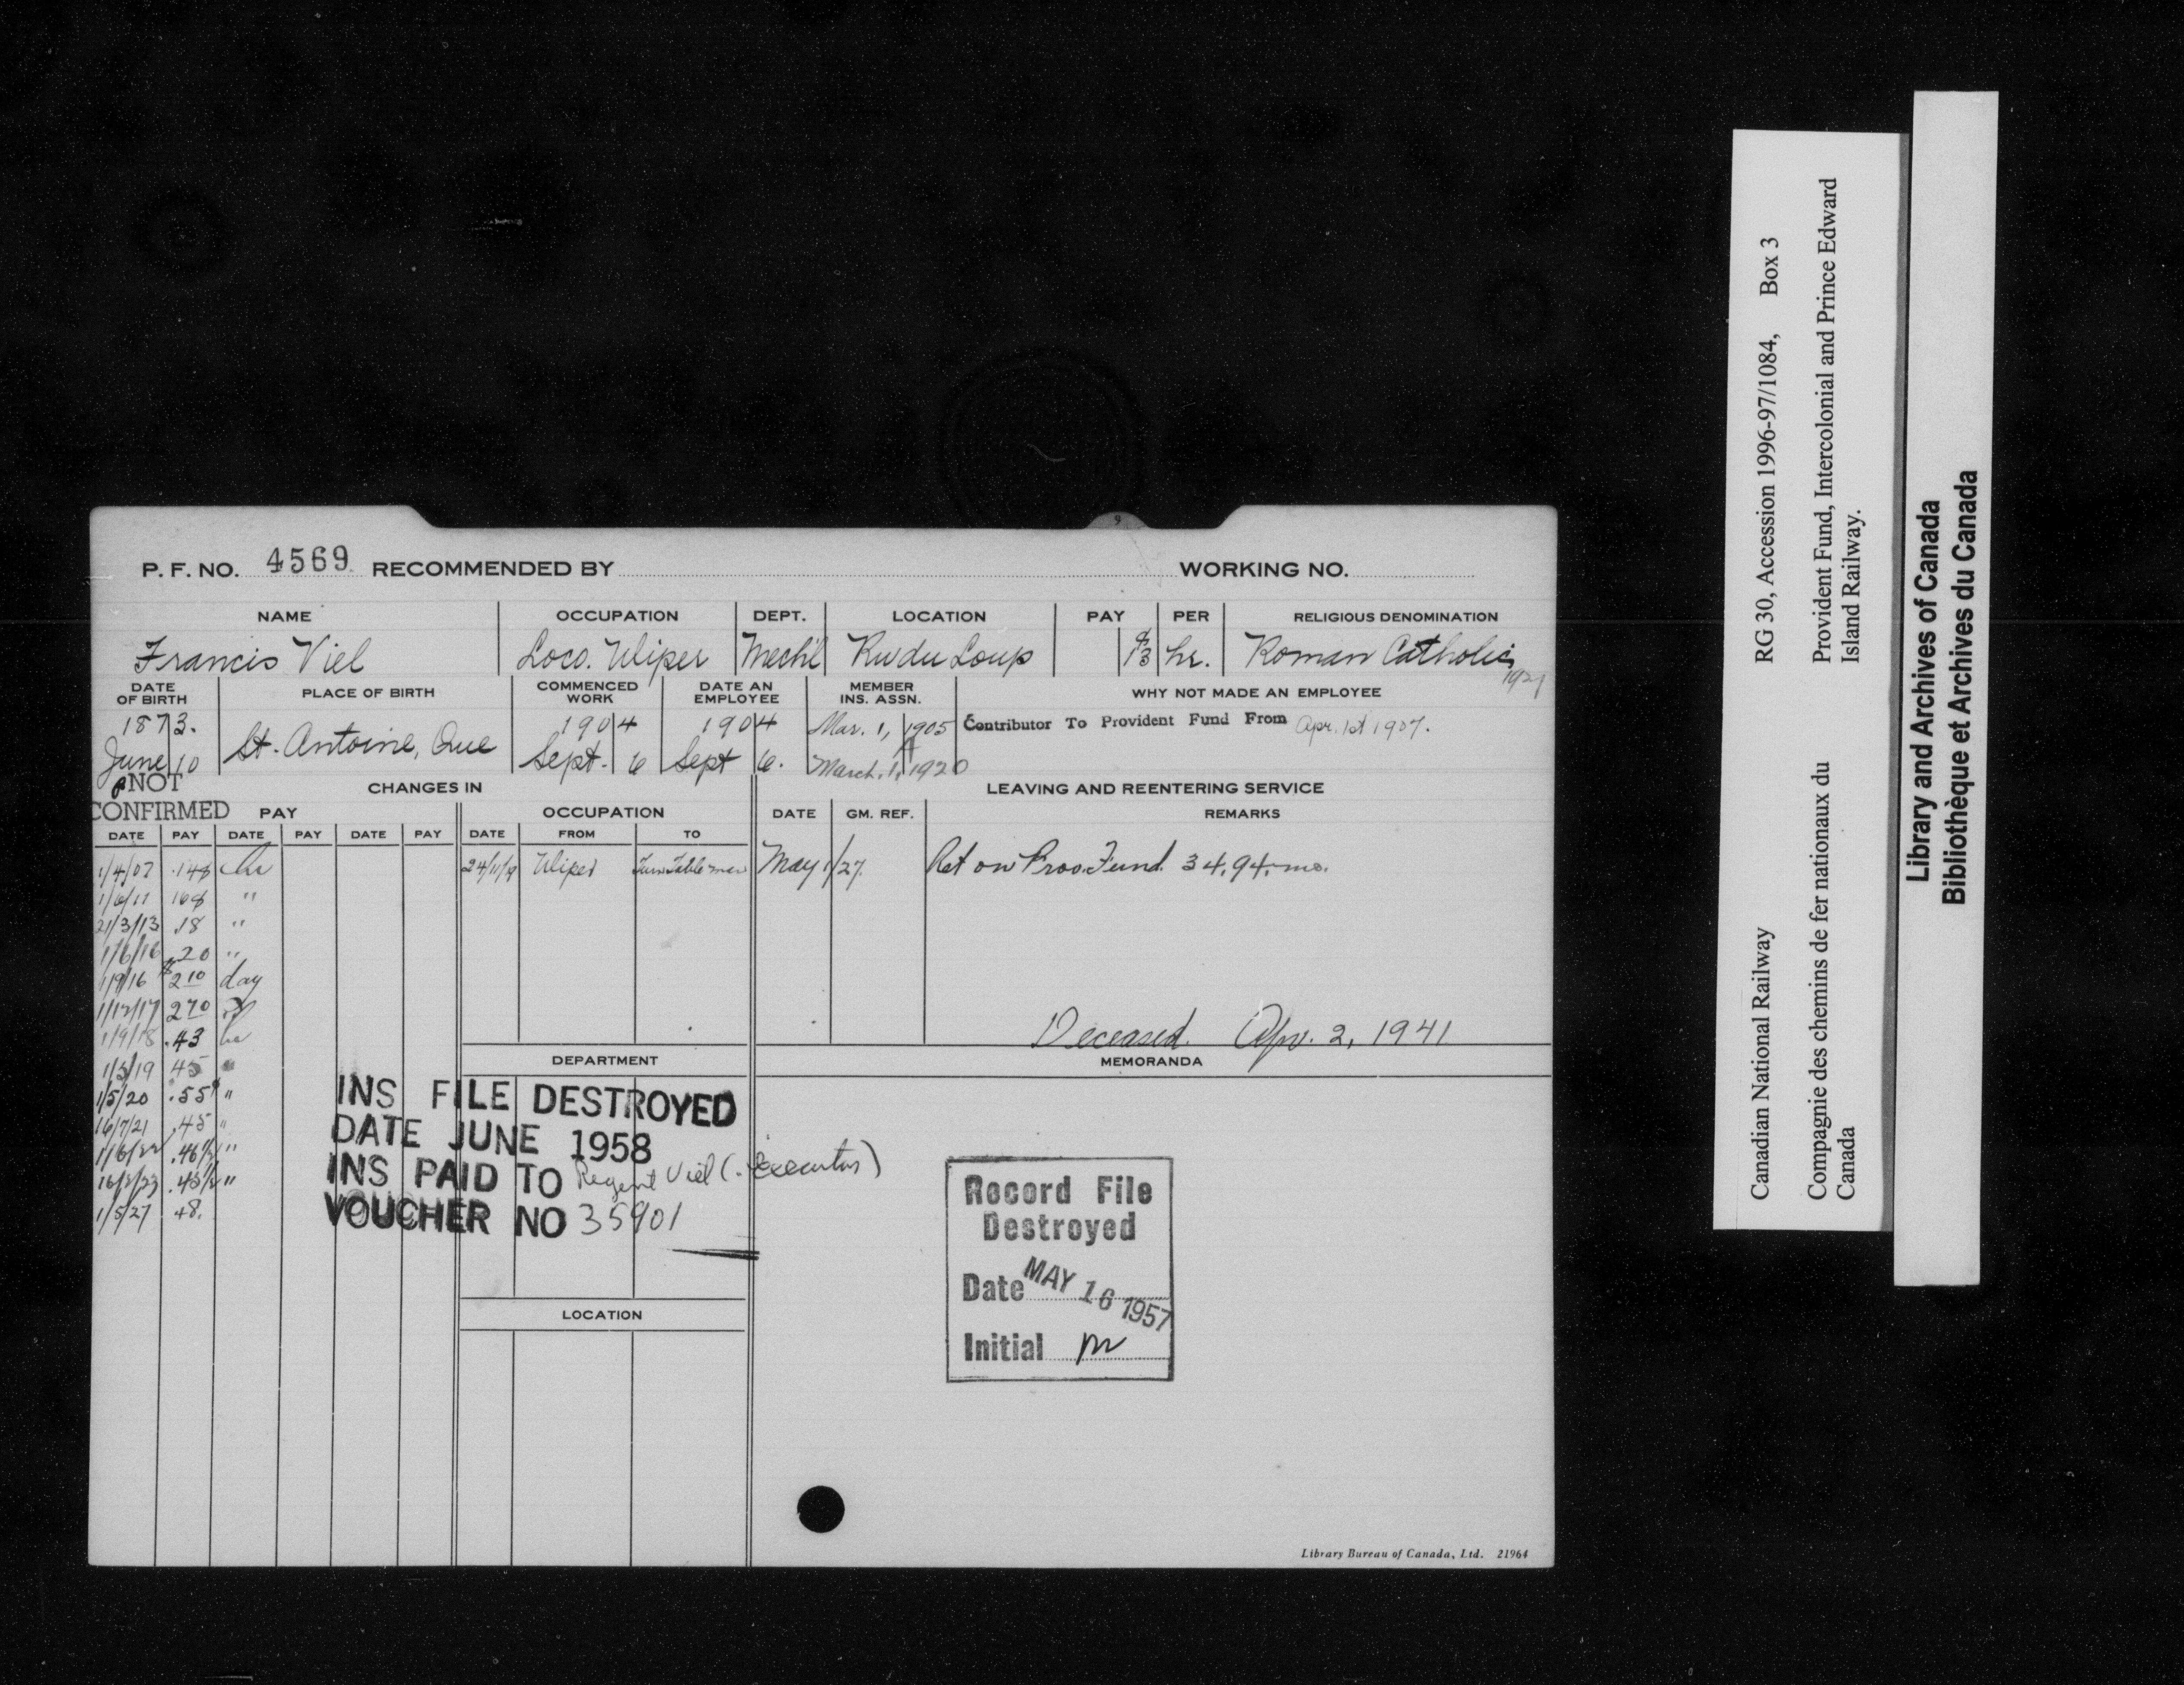 P. F. NO. 4569 RECOMMENDED BY WORKING NO.
NAME OCCUPATION DEPT. LOCATION PAY PER RELIGIOUS DENOMINATION
Francis Viel Loco. Wiper Mech'l Riv du Loup 13 hr. Roman Catholic
1921
DATE OF BIRTH PLACE OF BIRTH COMMENCED WORK DATE AN EMPLOYEE MEMBER INS. ASSN. WHY NOT MADE AN EMPLOYEE
1873. 1904 1904 Mar. 1, 1905 Contributor To Provident Fund From Apr. 1st 1907.
June 10 St. Antoine, Que Sept. 6 Sept 6. March. 1, 1920
A
NOT
CONFIRMED
CHANGES IN LEAVING AND REENTERING SERVICE
PAY OCCUPATION DATE GM. REF. REMARKS
DATE PAY DATE PAY DATE PAY DATE FROM TO
1/4/07 .14¢ hr 24/11/19 Wiper Turn Table man May 1/27. Ret on Prov. Fund. 34.94 mo.
1/6/11 16¢ "
21/3/13 .18 "
1/6/16 .20 "
1/9/16 $2 10 day
1/12/17 2 70
1/9/18 .43 hr
1/5/19 45 "
1/5/20 .55 "
16/7/21 .45 "
1/6/22 .46½ "
16/2/23 .45½ "
1/5/27 48.
Deceased. Apr. 2, 1941
DEPARTMENT MEMORANDA
INS FILE DESTROYED
DATE JUNE 1958
INS PAID TO Regent Viel (Executor)
VOUCHER NO 35901
LOCATION
Record File
Destroyed
Date MAY 16 1957
Initial m
Library Bureau of Canada, Ltd. 21964
9
Canadian National Railway RG 30, Accession 1996-97/1084, Box 3
Compagnie des chemins de fer nationaux du Canada
Provident Fund, Intercolonial and Prince Edward Island Railway.
Library and Archives of Canada
Bibliothèque et Archives du Canada